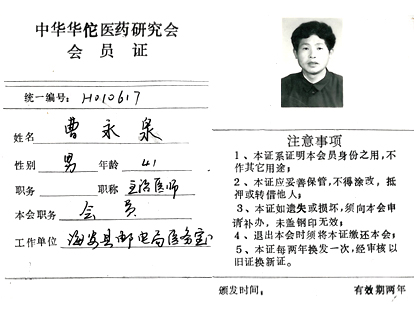 中华华佗医药研究会
会员证
统一编号：H010617
姓名 曹永泉
性别 男 年龄 41
职务 职称 主治医师
本会职务 会员
工作单位 海安县邮电局医务室
注意事项
1、本证系证明本会员身份之用，不
作其它用途；
2、本证应妥善保管，不得涂改，抵
押或转借他人；
3、本证如遗失或损坏，须向本会申
请补办，未盖钢印无效；
4、退出本会时须将本证缴还本会；
5、本证每两年换发一次，经审核以
旧证换新证。
颁发时间： 有效期两年